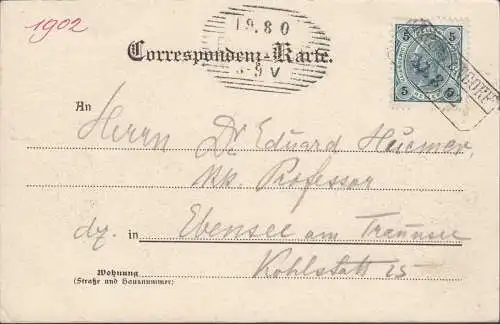 1902
19.8.0
Correspondenz-Karte.
-9 V
5 5
5 5
An
Herrn Dr Eduard
k.k. Professor
dz. in Ebensee am Traunsee
Kohlstatt 25
Wohnung
(Straße und Hausnummer)